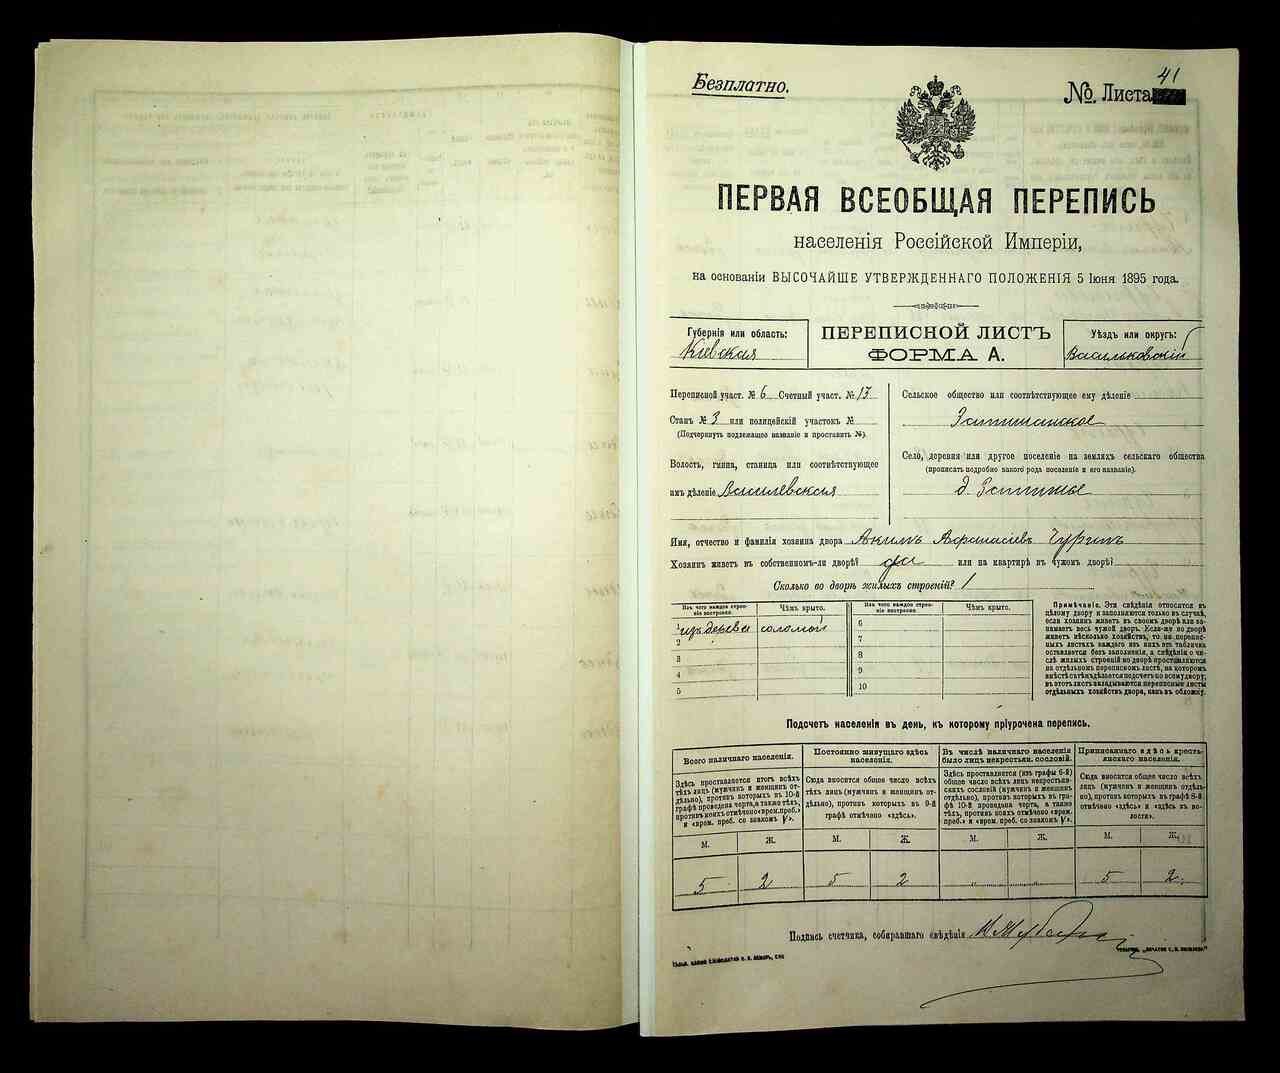 Безплатно.
41
№ Листа
ПЕРВАЯ ВСЕОБЩАЯ ПЕРЕПИСЬ
населенія Россійской Имперіи,
на основаніи ВЫСОЧАЙШЕ УТВЕРЖДЕННАГО ПОЛОЖЕНІЯ 5 Іюня 1895 года.
Губернія или область:
Кіевская
ПЕРЕПИСНОЙ ЛИСТЪ
ФОРМА А.
Уѣздъ или округъ:
Васильковскій
Переписной участ. № 6 Счетный участ. № 17
Станъ № 3 или полицейскій участокъ №
(Подчеркнуть подлежащее названіе и проставить №).
Волость, гмина, станица или соотвѣтствующее
имъ дѣленіе Василевская
Сельское общество или соотвѣтствующее ему дѣленіе
Затишанское
Село, деревня или другое поселеніе на земляхъ сельскаго общества
(прописать подробно какого рода поселеніе и его названіе).
д. Затишье
Имя, отчество и фамилія хозяина двора Акимъ Афанасіевъ Чуринъ
Хозяинъ живетъ въ собственномъ-ли дворѣ? да или на квартирѣ въ чужомъ дворѣ?
Сколько во дворѣ жилыхъ строеній? 1
Изъ чего каждое строеніе построено.
Чѣмъ крыто.
Изъ чего каждое строеніе построено.
Чѣмъ крыто.
1 изъ дерева соломой
2
3
4
5
6
7
8
9
10
Примѣчаніе. Эти свѣдѣнія относятся къ
цѣлому двору и заполняются только въ случаѣ,
если хозяинъ живетъ въ своемъ дворѣ или занимаетъ
весь чужой дворъ. Если-же во дворѣ
живетъ нѣсколько хозяйствъ, то на переписныхъ
листахъ каждаго изъ нихъ эта табличка
оставляется безъ заполненія, а свѣдѣнія о числѣ
жилыхъ строеній во дворѣ проставляются
на отдѣльномъ переписномъ листѣ, на которомъ
вмѣстѣ съ тѣмъ дѣлается подсчетъ по всему двору;
въ этотъ листъ вкладываются переписные листы
отдѣльныхъ хозяйствъ двора, какъ въ обложку.
Подсчетъ населенія въ день, къ которому пріурочена перепись.
Всего наличнаго населенія.
Постоянно живущаго здѣсь
населенія.
Въ числѣ наличнаго населенія
было лицъ некрестьян. сословій.
Приписаннаго здѣсь крестьянскаго
населенія.
Здѣсь проставляется итогъ всѣхъ
тѣхъ лицъ (мужчинъ и женщинъ отдѣльно),
противъ которыхъ въ 10-й
графѣ проведена черта, а также тѣхъ,
противъ коихъ отмѣчено «врем. преб.»
и «врем. преб. со знакомъ V».
Сюда вносится общее число всѣхъ
тѣхъ лицъ (мужчинъ и женщинъ отдѣльно),
противъ которыхъ въ 9-й
графѣ отмѣчено «здѣсь».
Здѣсь проставляется (изъ графы 6-й)
общее число лицъ всѣхъ некрестьянскихъ
сословій (мужчинъ и женщинъ
отдѣльно), противъ которыхъ въ графѣ
10-й проведена черта, а также
тѣхъ, противъ коихъ отмѣчено «врем.
преб.» и «врем. преб. со знакомъ V».
Сюда вносится общее число всѣхъ
лицъ (мужчинъ и женщинъ отдѣльно),
противъ которыхъ въ графѣ 8-й
отмѣчено «здѣсь» и «здѣсь въ волости».
М. Ж. М. Ж. М. Ж. М. Ж.
5 2 5 2 „ „ 5 2
Подпись счетчика, собиравшаго свѣдѣнія